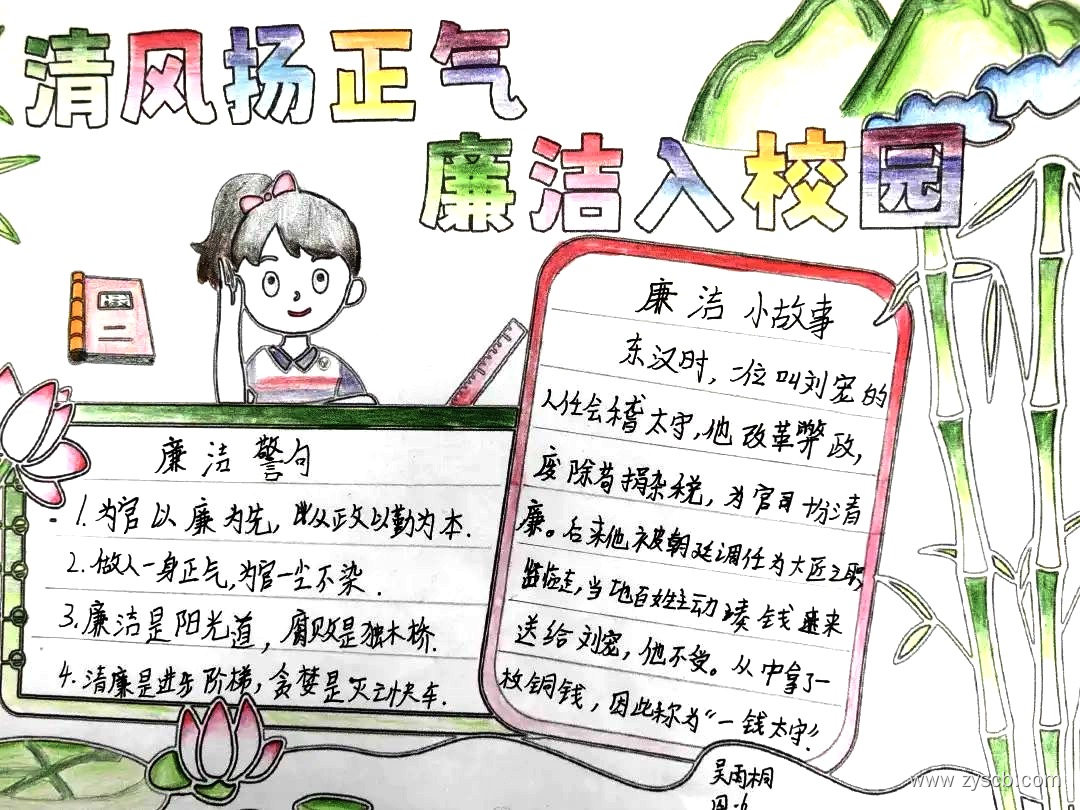 清风扬正气
廉洁入校园
二
廉洁警句
1.为官以廉为先,从政以勤为本.
2.做人一身正气,为官一尘不染.
3.廉洁是阳光道,腐败是独木桥.
4.清廉是进步阶梯,贪婪是灭动快车.
廉洁小故事
东汉时,一位叫刘宠的
人任会稽太守,他改革弊政,
废除苛捐杂税,为官十分清
廉。后来他被朝廷调任为大匠之职,
临走,当地百姓主动凑钱来
送给刘宠,他不受。从中拿了一
枚铜钱,因此称为“一钱太守”.
吴雨桐
四·6
www.zyscb.com